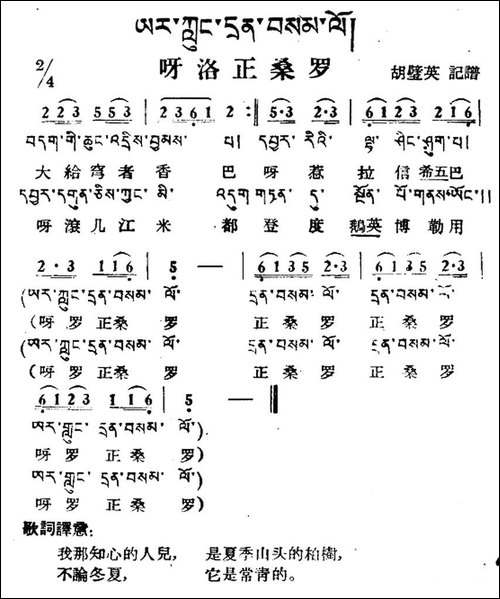 ཨར་ཀླུང་དྲན་བསམ་ལོ།
2/4 呀洛正桑罗 胡璧英 記譜
2 2 3 5 5 3 | 2 3 6 1 2 : ‖ 5·3 2·3 | 6 1 2 3 1 2 6 |
བདག་གི་ཆུང་འདྲིས་བྱམས་ པ། དབྱར་ རིའི་ ལྷ་ ཤིང་ཤུག་པ།
大 給 穹 者 香 巴 呀 惹 拉 信 希五巴
དབྱར་དགུན་ཅིས་ཀྱང་ མི་ འདུག གཏན་ དུ་ སྔོན་ པོ་གནས་ཡོང་།།
呀 滾 几 江 米 都 登 度 鵝英 博 勒 用
2·3 1 1 6 | 5 — | 6 1 3 5 2·3 | 6 1 3 5 2·3 |
(ཨར་ཀླུང་དྲན་བསམ་ ལོ་ དྲན་བསམ་ ལོ་ དྲན་བསམ་ ལོ་
(呀 罗 正桑 罗 正桑 罗 正桑 罗
(ཨར་ཀླུང་དྲན་བསམ་ ལོ་ དྲན་བསམ་ ལོ་ དྲན་བསམ་ ལོ་
(呀 罗 正桑 罗 正桑 罗 正桑 罗
6 1 2 3 1 1 6 | 5 — ‖
ཨར་ཀླུང་ དྲན་བསམ་ ལོ་).
呀 罗 正 桑 罗)
ཨར་ཀླུང་ དྲན་བསམ་ ལོ་)
呀 罗 正 桑 罗)
歌詞譯意:
我那知心的人兒, 是夏季山头的柏樹,
不論冬夏, 它是常青的。